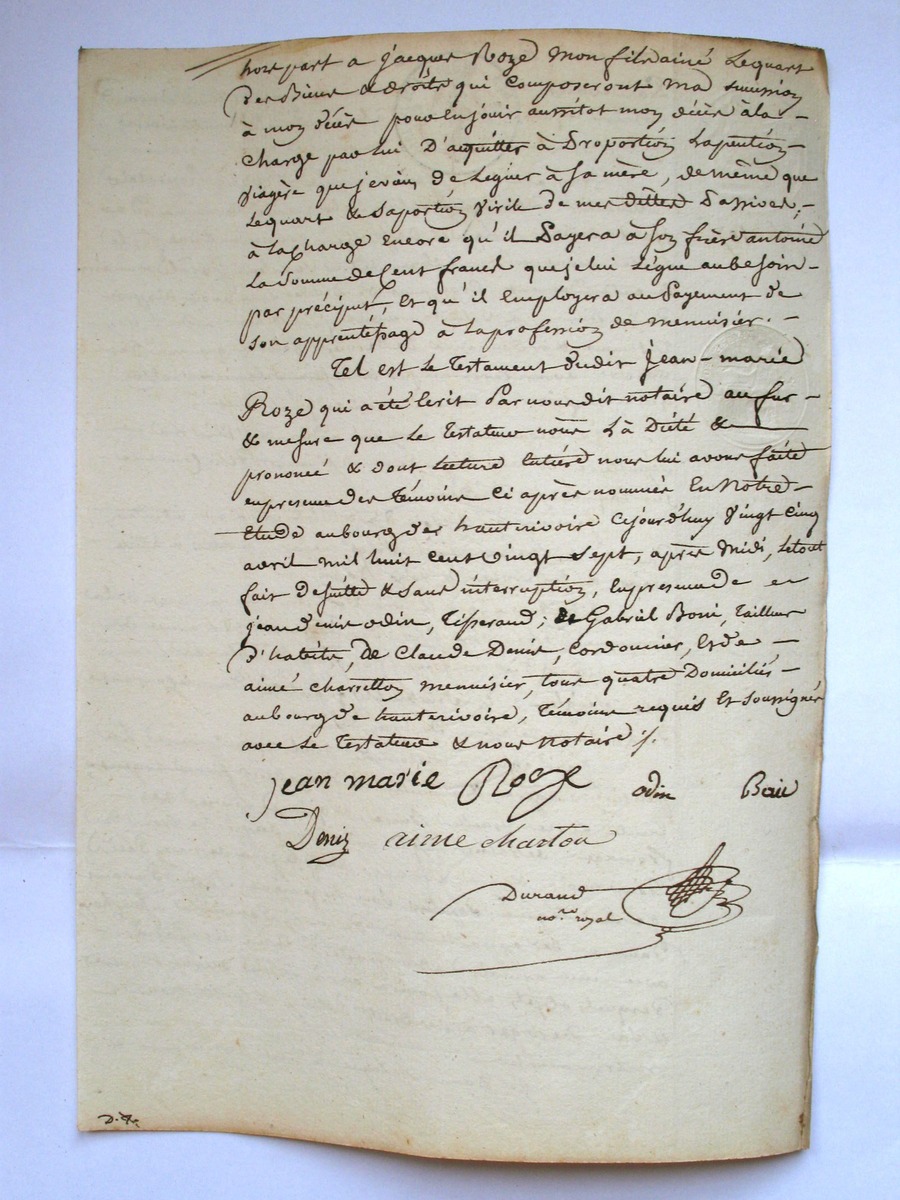 hors part a jacques Roze mon fils ainé le quart
des Biens & droits qui composeront ma succession
à mon décès pour en jouir aussitot mon décès à la
charge par lui d'acquitter à Proportion la pention
viagère que je vais de Léguer à sa mère, de même que
le quart & sa portion virile de mes dettes Passives;
à la charge encore qu'il Payera à son frère antoine
La somme de Cent francs que je lui Lègue au besoin
par préciput, Et qu'il Employera au Payement de
son apprentissage à la profession de menuisier.
Tel est le Testament dudit jean-marie
Roze qui a été Ecrit Par nous dit notaire au fur
& mesure que le Testateur nous L'à Dicté &
prononcé & dont Lecture Entière nous lui avons faite
en presence des Témoins Ci après nommés En Notre
Etude au bourg des hauterivoire Cejourd'huy Vingt Cinq
avril mil huit cent Vingt Sept, après Midi, Le tout
fait de suitte & sans interruption, En presence de
jean denis odin, Tisserand; de Gabriel Boni, Tailleur
d'habits, de Claude Denis, Cordonnier, Et de
aimé Charretton menuisier, tous quatre Domiciliés
au bourg de hauterivoire, Témoins requis Et soussignés
avec Le Testateur & nous notaire ./.
jean marie Roze odin Boni
Deniz aime charton
Durand
no.re royal